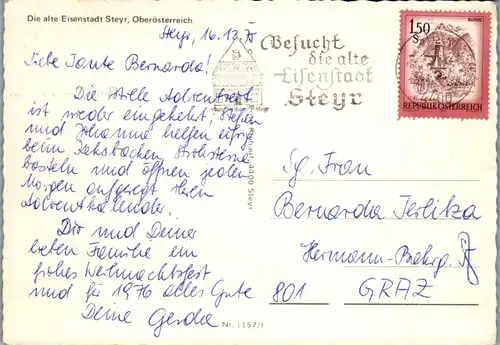 Die alte Eisenstadt Steyr, Oberösterreich
Steyr, 16.12.75
Liebe Tante Bernarda!
Die stille Adventzeit
ist wieder eingekehrt. Stefan
und Johanna helfen eifrig
beim Keksbacken, Strohsterne
basteln und öffnen jeden
Morgen aufgeregt ihren
Adventkalender.
Dir und Deiner
lieben Familie ein
frohes Weihnachtsfest
und für 1976 alles Gute
Deine Gerda
Nr. 1157/1
4400 Steyr
Besucht
die alte
Eisenstadt
Steyr
1.50
REPUBLIK ÖSTERREICH
Sg. Frau
Bernarda Terlitza
Hermann-Bahrg.
801 GRAZ